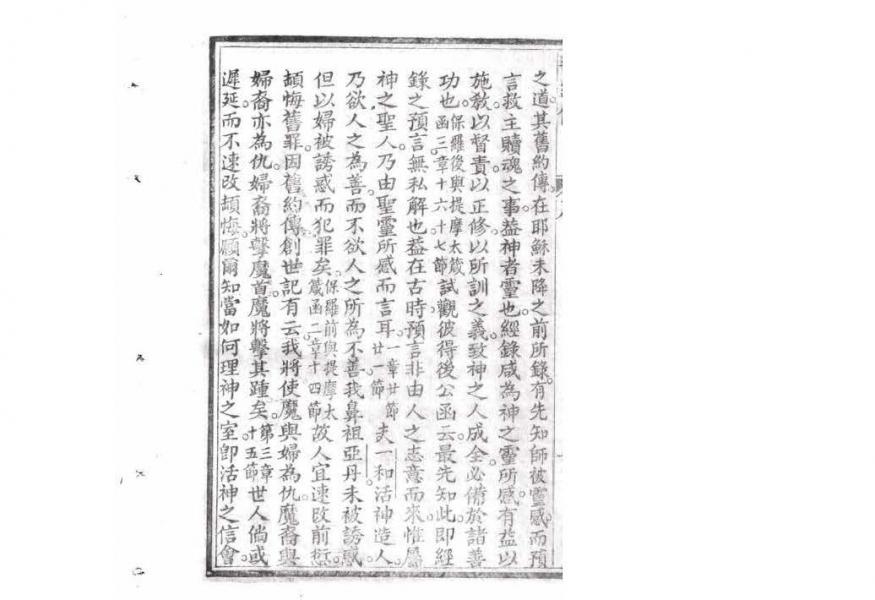 之道其舊約傳在耶穌未降之前所錄有先知師被靈感而預
言救主贖魂之事葢神者靈也經錄咸為神之靈所感有益以
施教以督責以正修以所訓之義致神之人成全必備於諸善
功也保羅後與提摩太箴函三章十六十七節試觀彼得後公函云最先知此即經
錄之預言無私解也葢在古時預言非由人之志意而來惟屬
神之聖人乃由聖靈所感而言耳一章廿節廿一節夫一和活神造人
乃欲人之為善而不欲人之所為不善我鼻祖亞丹未被誘惑
但以婦被誘惑而犯罪矣保羅前與提摩太箴函二章十四節故人宜速改前愆
頡悔舊罪因舊約傳創世記有云我將使魔與婦為仇魔裔與
婦裔亦為仇婦裔將擊魔首魔將擊其踵矣第三章十五節世人倘或
遲延而不速改頡悔願爾知當如何理神之室卽活神之信會